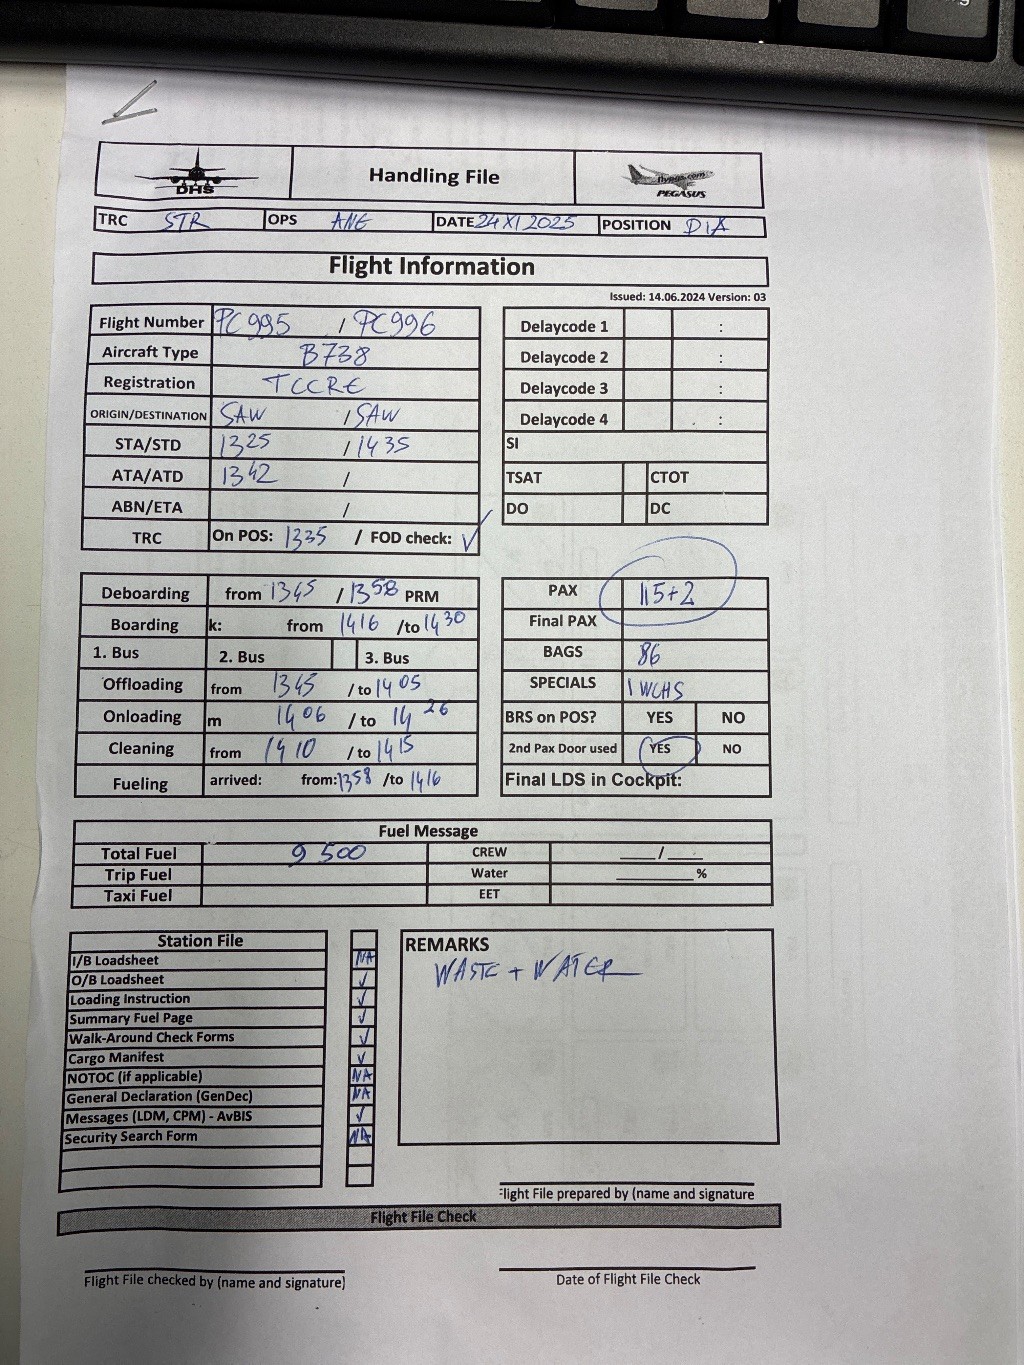 DHS
Handling File
flypgs.com
PEGASUS
TRC STR OPS ANE DATE 24 XI 2025 POSITION D1A
Flight Information
Issued: 14.06.2024 Version: 03
Flight Number PC995 / PC996
Aircraft Type B738
Registration TCCRE
ORIGIN/DESTINATION SAW / SAW
STA/STD 1325 / 1435
ATA/ATD 1342 /
ABN/ETA /
TRC On POS: 1335 / FOD check: ✓
Delaycode 1 :
Delaycode 2 :
Delaycode 3 :
Delaycode 4 :
SI
TSAT CTOT
DO DC
Deboarding from 1345 / 1358 PRM
Boarding k: from 1416 /to 1430
1. Bus 2. Bus 3. Bus
Offloading from 1345 / to 1405
Onloading m 1406 / to 1426
Cleaning from 1410 / to 1415
Fueling arrived: from: 1358 /to 1416
PAX 115+2
Final PAX
BAGS 86
SPECIALS 1 WCHS
BRS on POS? YES NO
2nd Pax Door used YES NO
Final LDS in Cockpit:
Fuel Message
Total Fuel 9 500 CREW ___/___
Trip Fuel Water ______%
Taxi Fuel EET
Station File
I/B Loadsheet NA
O/B Loadsheet ✓
Loading Instruction ✓
Summary Fuel Page ✓
Walk-Around Check Forms ✓
Cargo Manifest ✓
NOTOC (if applicable) NA
General Declaration (GenDec) NA
Messages (LDM, CPM) - AvBIS ✓
Security Search Form NA
REMARKS
WASTE + WATER
Flight File prepared by (name and signature
Flight File Check
Flight File checked by (name and signature)
Date of Flight File Check